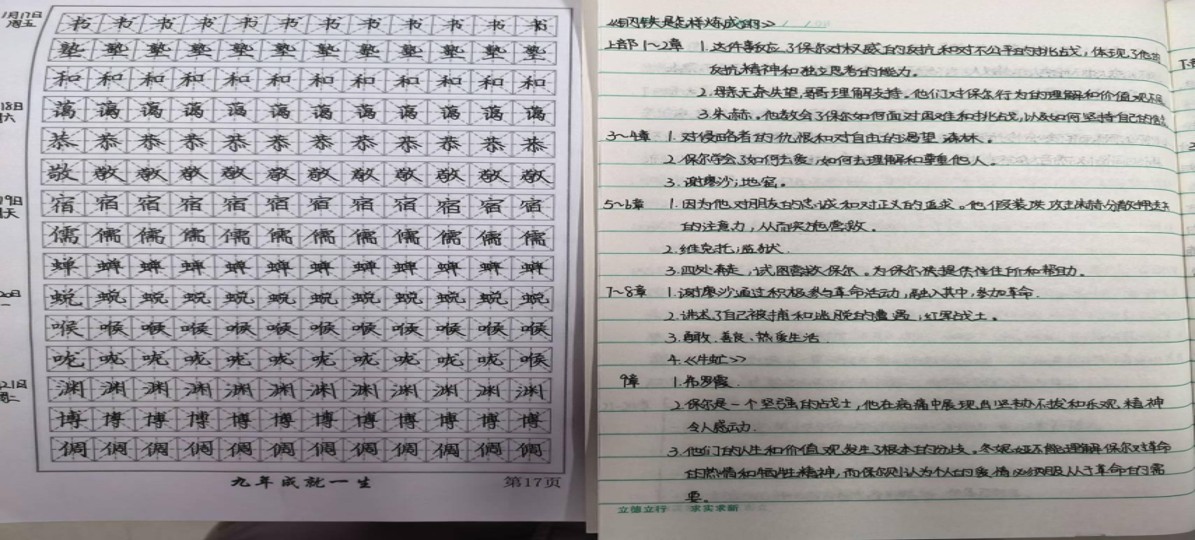 1月17日
周五
书书书书书书书书书书书书
塾塾塾塾塾塾塾塾塾塾塾塾
和和和和和和和和和和和和
18日
六
蔼蔼蔼蔼蔼蔼蔼蔼蔼蔼蔼蔼
恭恭恭恭恭恭恭恭恭恭恭恭
敬敬敬敬敬敬敬敬敬敬敬敬
19日
天
宿宿宿宿宿宿宿宿宿宿宿宿
儒儒儒儒儒儒儒儒儒儒儒儒
蝉蝉蝉蝉蝉蝉蝉蝉蝉蝉蝉蝉
20日
蜕蜕蜕蜕蜕蜕蜕蜕蜕蜕蜕蜕
喉喉喉喉喉喉喉喉喉喉喉喉
咙咙咙咙咙咙咙咙咙咙咙喉
21日
周二
渊渊渊渊渊渊渊渊渊渊渊渊
博博博博博博博博博博博博
倜倜倜倜倜倜倜倜倜倜倜倜
九年成就一生 第17页
《钢铁是怎样炼成的》
上部1~2章 1.这件事反应了保尔对权威的反抗和对不公平的挑战,体现了他的
反抗精神和独立思考的能力。
2.母亲无奈失望,哥哥理解支持。他们对保尔行为的理解和价值观不同
3.朱赫。他教会了保尔如何面对困难和挑战,以及如何坚持自己的
3~4章 1.对侵略者的仇恨和对自由的渴望 森林。
2.保尔学会了如何去爱,如何去理解和尊重他人。
3.谢廖沙;地窖。
5~6章 1.因为他对朋友的忠诚和对正义的追求。他假装攻击朱赫分散押送
的注意力,从而实施营救。
2.维克托;监狱.
3.四处奔走,试图营救保尔。为保尔提供住所和帮助。
7~8章 1.谢廖沙通过积极参与革命活动,融入其中,参加革命.
2.讲述了自己被捕和逃脱的遭遇;红军战士。
3.勇敢、善良、热爱生活
4.《牛虻》
9章 1.右罗霞.
2.保尔是一个坚强的战士,他在病痛中展现出坚韧不拔和乐观精神
令人感动.
3.他们的人生和价值观发生了根本的分歧。冬妮娅不能理解保尔对革命
的热情和牺牲精神,而保尔则认为个人的爱情必须服从于革命的需
要。
立德立行 求实求新